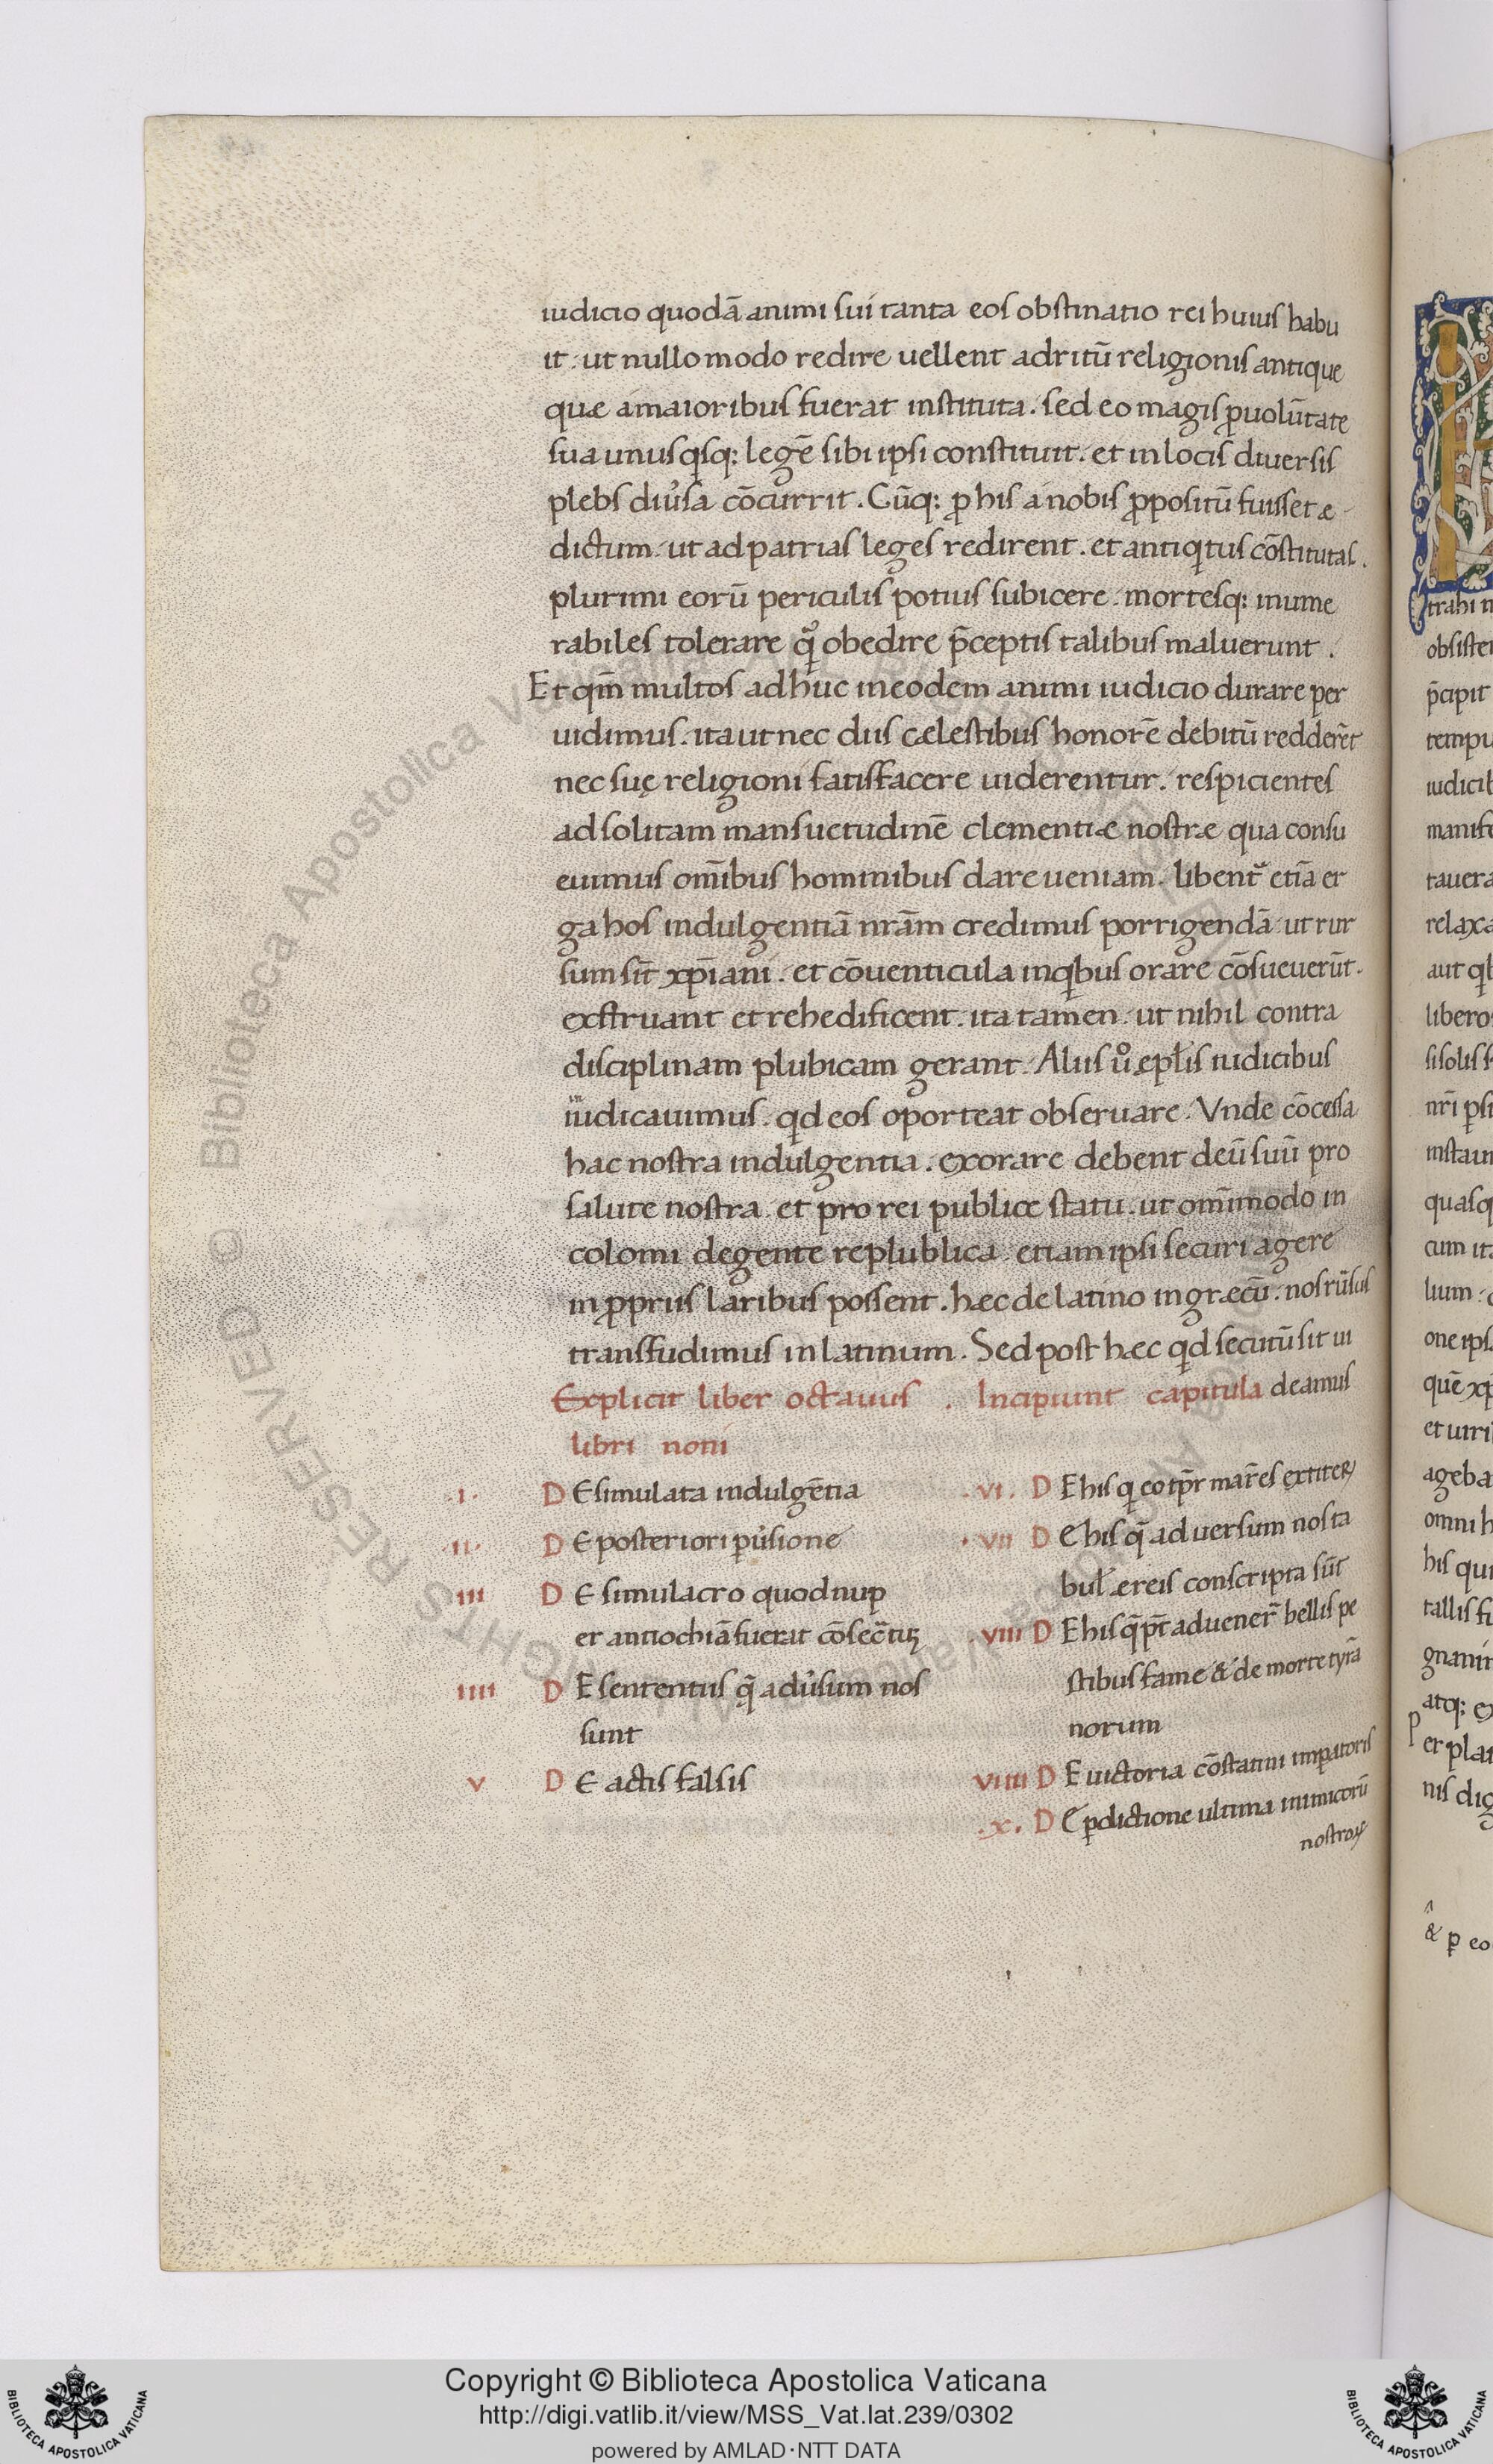 iudicio quodā animi sui tanta eos obstinatio rei huius habu
it. ut nullo modo redire uellent ad ritū religionis antique
quæ a maioribus fuerat instituta. sed eo magis ꝓ uolūtate
sua unusqsq: legē sibi ipsi constituit. et in locis diuersis
plebs diu̓sa cōcurrit. Cūq: ꝓ his a nobis ꝓpositū fuisset æ
dictum. ut ad patrias leges redirent. et antiqitus cōstitutas.
plurimi eorū periculis potius subicere. mortesq: inume
rabiles tolerare qͣ̃ obedire p̄ceptis talibus maluerunt.
Et qm̄ multos ad huc in eodem animi iudicio durare per
uidimus. ita ut nec diis cælestibus honorē debitū redderēt
nec suę religioni satisfacere uiderentur. respicientes
ad solitam mansuetudinē clementiæ nostræ qua consu
euimus om̄ibus hominibus dare ueniam. libent᷑ etiā er
ga hos indulgentiā nrām credimus porrigendā ut rur
sum sīt xp̄iani. et cōuenticula in qibus orare cōsueuerūt.
exstruant et rehedificent. ita tamen. ut nihil contra
disciplinam plubicam gerant. Aliis ů ep̄lis iudicibus
in
iudicauimus. qd eos oporteat obseruare. Vnde cōcessa
hac nostra indulgentia. exorare debent deū suū pro
salute nostra. et pro rei publice statu. ut om̄imodo in
colomi degente replublica. etiam ipsi securi agere
in ꝓpriis laribus possent. hæc de latino in græcū. nos rūsus
transfudimus in latinum. Sed post hæc qd secutū sit ui
Explicit liber octauus. Incipiunt capitula deamus
libri noni
.I. DE simulata indulgētia
.II. DE posteriori ꝑu̓sione
III DE simulacro quod nup
er antiochiā fuerit cōsec̄tū
IIII DE sententiis q̄ adu̓sum nos
sunt
V DE actis falsis
.VI. DE his q eo tp̄r mar̄es extiterꝝ
.VII DE his q̄ aduersum nos ta
bul̄ ereis conscripta sūt
.VIII DE his q̄ p̄t aduener̄ bellis pe
stibus fame & de morte tyrā
norum
VIIII DE uictoria cōstatini imꝑatoris
.X. DE ꝑdictione ultima inimicorū
nostroꝝ
trahi n
obsiste
p̄cipit
tempu
iudicib
manife
tauera
relaxa
aut qb
libero
si solis s
nrī ipsi
instaur
quasq
cum ita
lium. 
one ips
quē xp
et uiri
ageba
omni h
his qui
tallis fu
gnanir
atq: e
p
er plat
nis dig
& ꝑ eo
© Biblioteca Apostolica Vaticana
RIGHTS RESERVED
Copyright © Biblioteca Apostolica Vaticana
http://digi.vatlib.it/view/MSS_Vat.lat.239/0302
powered by AMLAD·NTT DATA
BIBLIOTECA APOSTOLICA VATICANA
BIBLIOTECA APOSTOLICA VATICANA